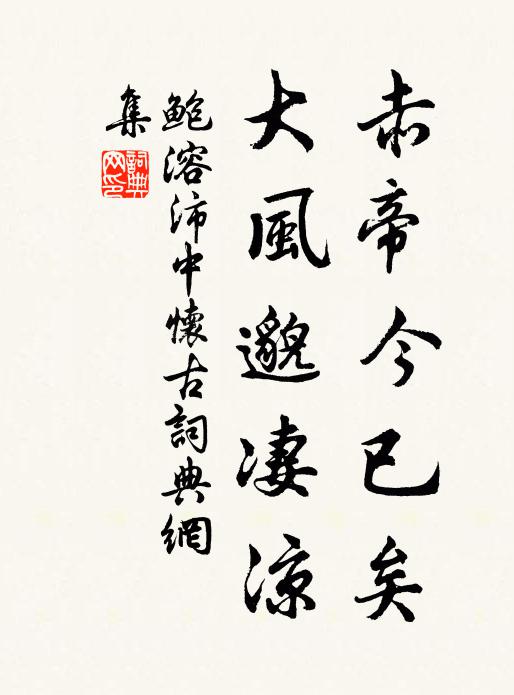 赤帝今已矣
大風邈淒涼
鮑溶沛中懷古詞典網
集
詞典网印